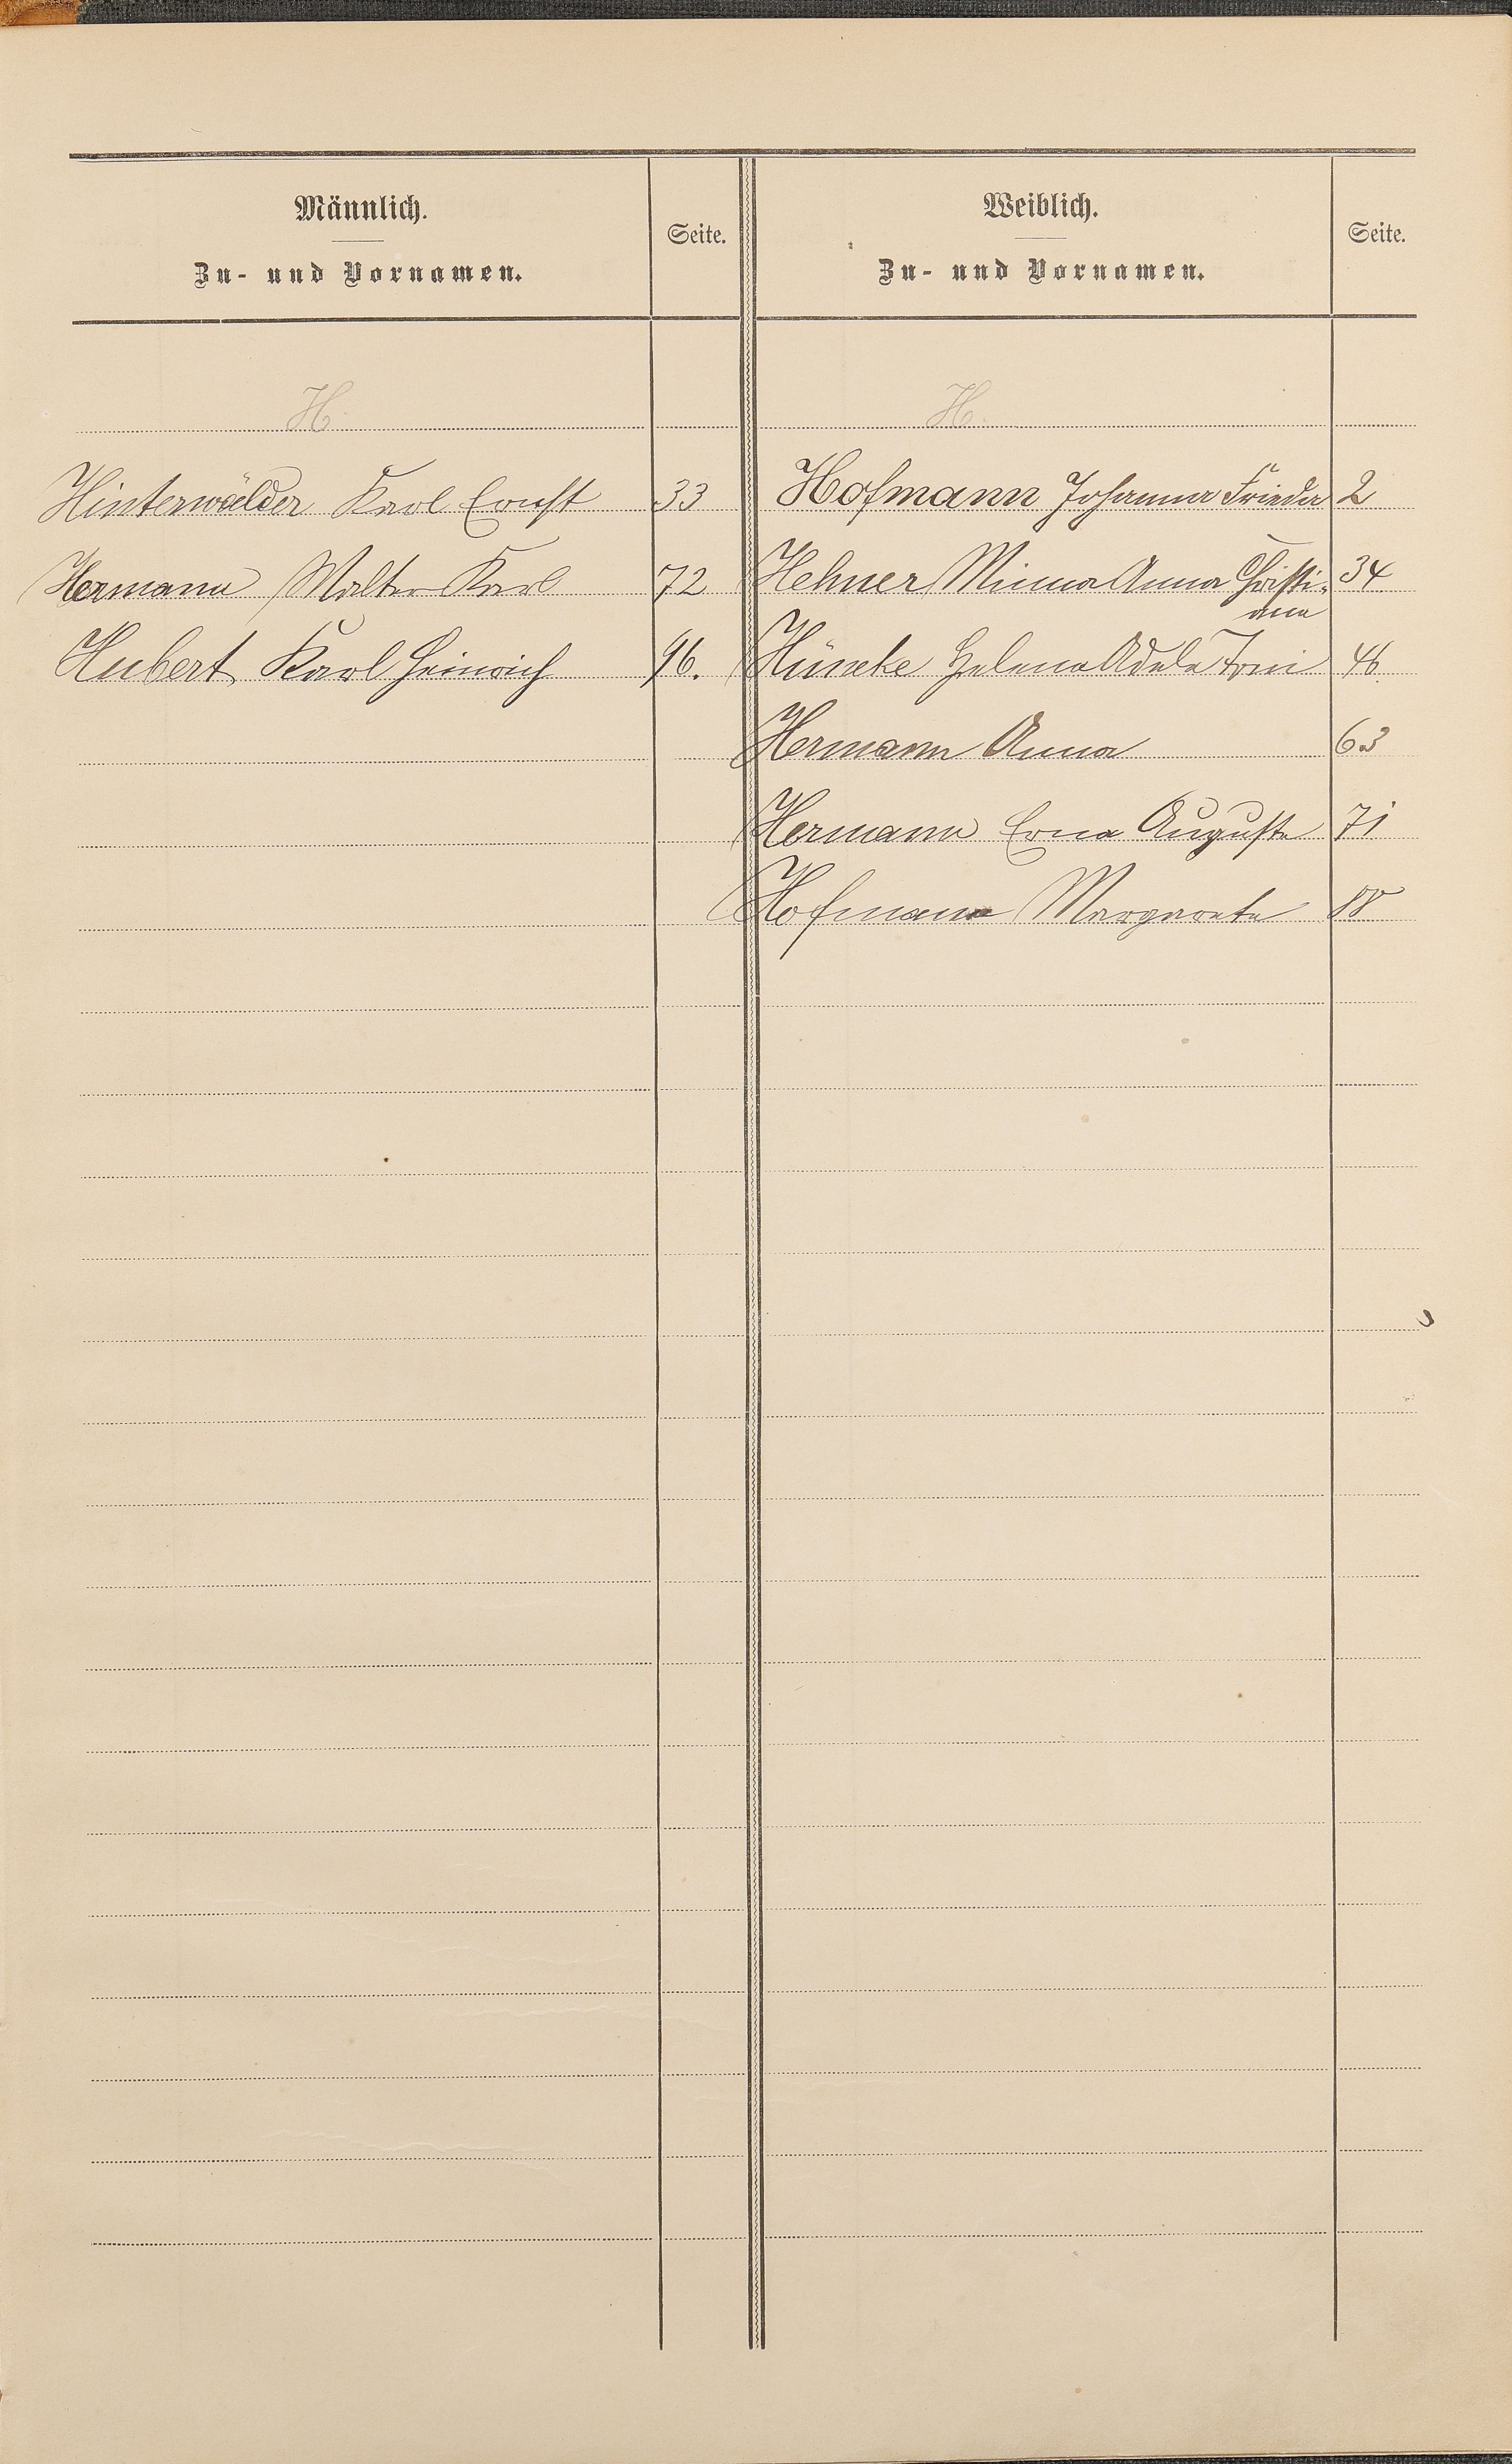 Männlich.
Zu- und Vornamen.
Seite.
Weiblich.
Zu- und Vornamen.
Seite.
H.
H.
Hinterwälder Karl Ernst 33
Hofmann Johanna Frieda 2
Hermann Walter Karl 72
Hehner Minna Anna Christi- 34
ana
Hubert Karl Heinrich 96.
Hüneke Helena Adele Toni 46.
Hermann Anna 63
Hermann Erna Auguste 71
Hofmann Margarete 88